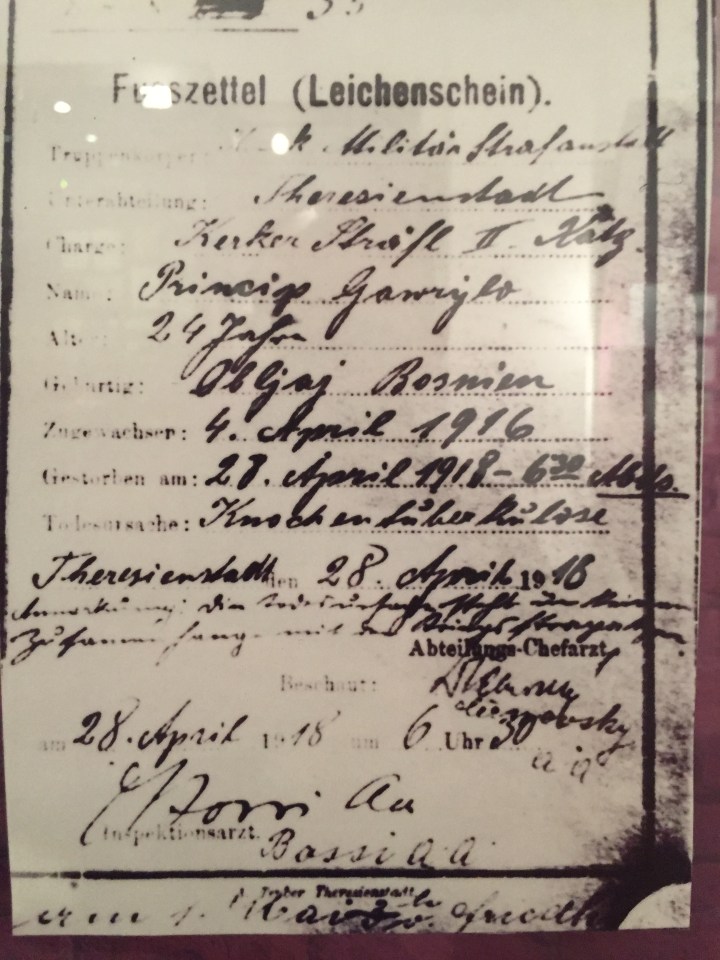 Fusszettel (Leichenschein).
Truppenkörper: k Militär Strafanstalt
Unterabteilung: Theresienstadt
Charge: Kerker Sträfl II. Kátg.
Name: Princip Gawrylo
Alter: 24 Jahre
Gebürtig: Obljaj Bosnien
Zugewachsen: 4. April 1916
Gestorben am: 28. April 1918 – 6 30 Abds.
Todesursache: Knochentuberkulose
Theresienstadt den 28. April 1918
Anmerkung: Die Todesursache steht in keinem
Zusammenhange mit den Kriegsstrapazen
Abteilungs-Chefarzt
Beschaut:
am 28. April 1918 um 6 Uhr 30
Inspektionsarzt.
Theresienstadt